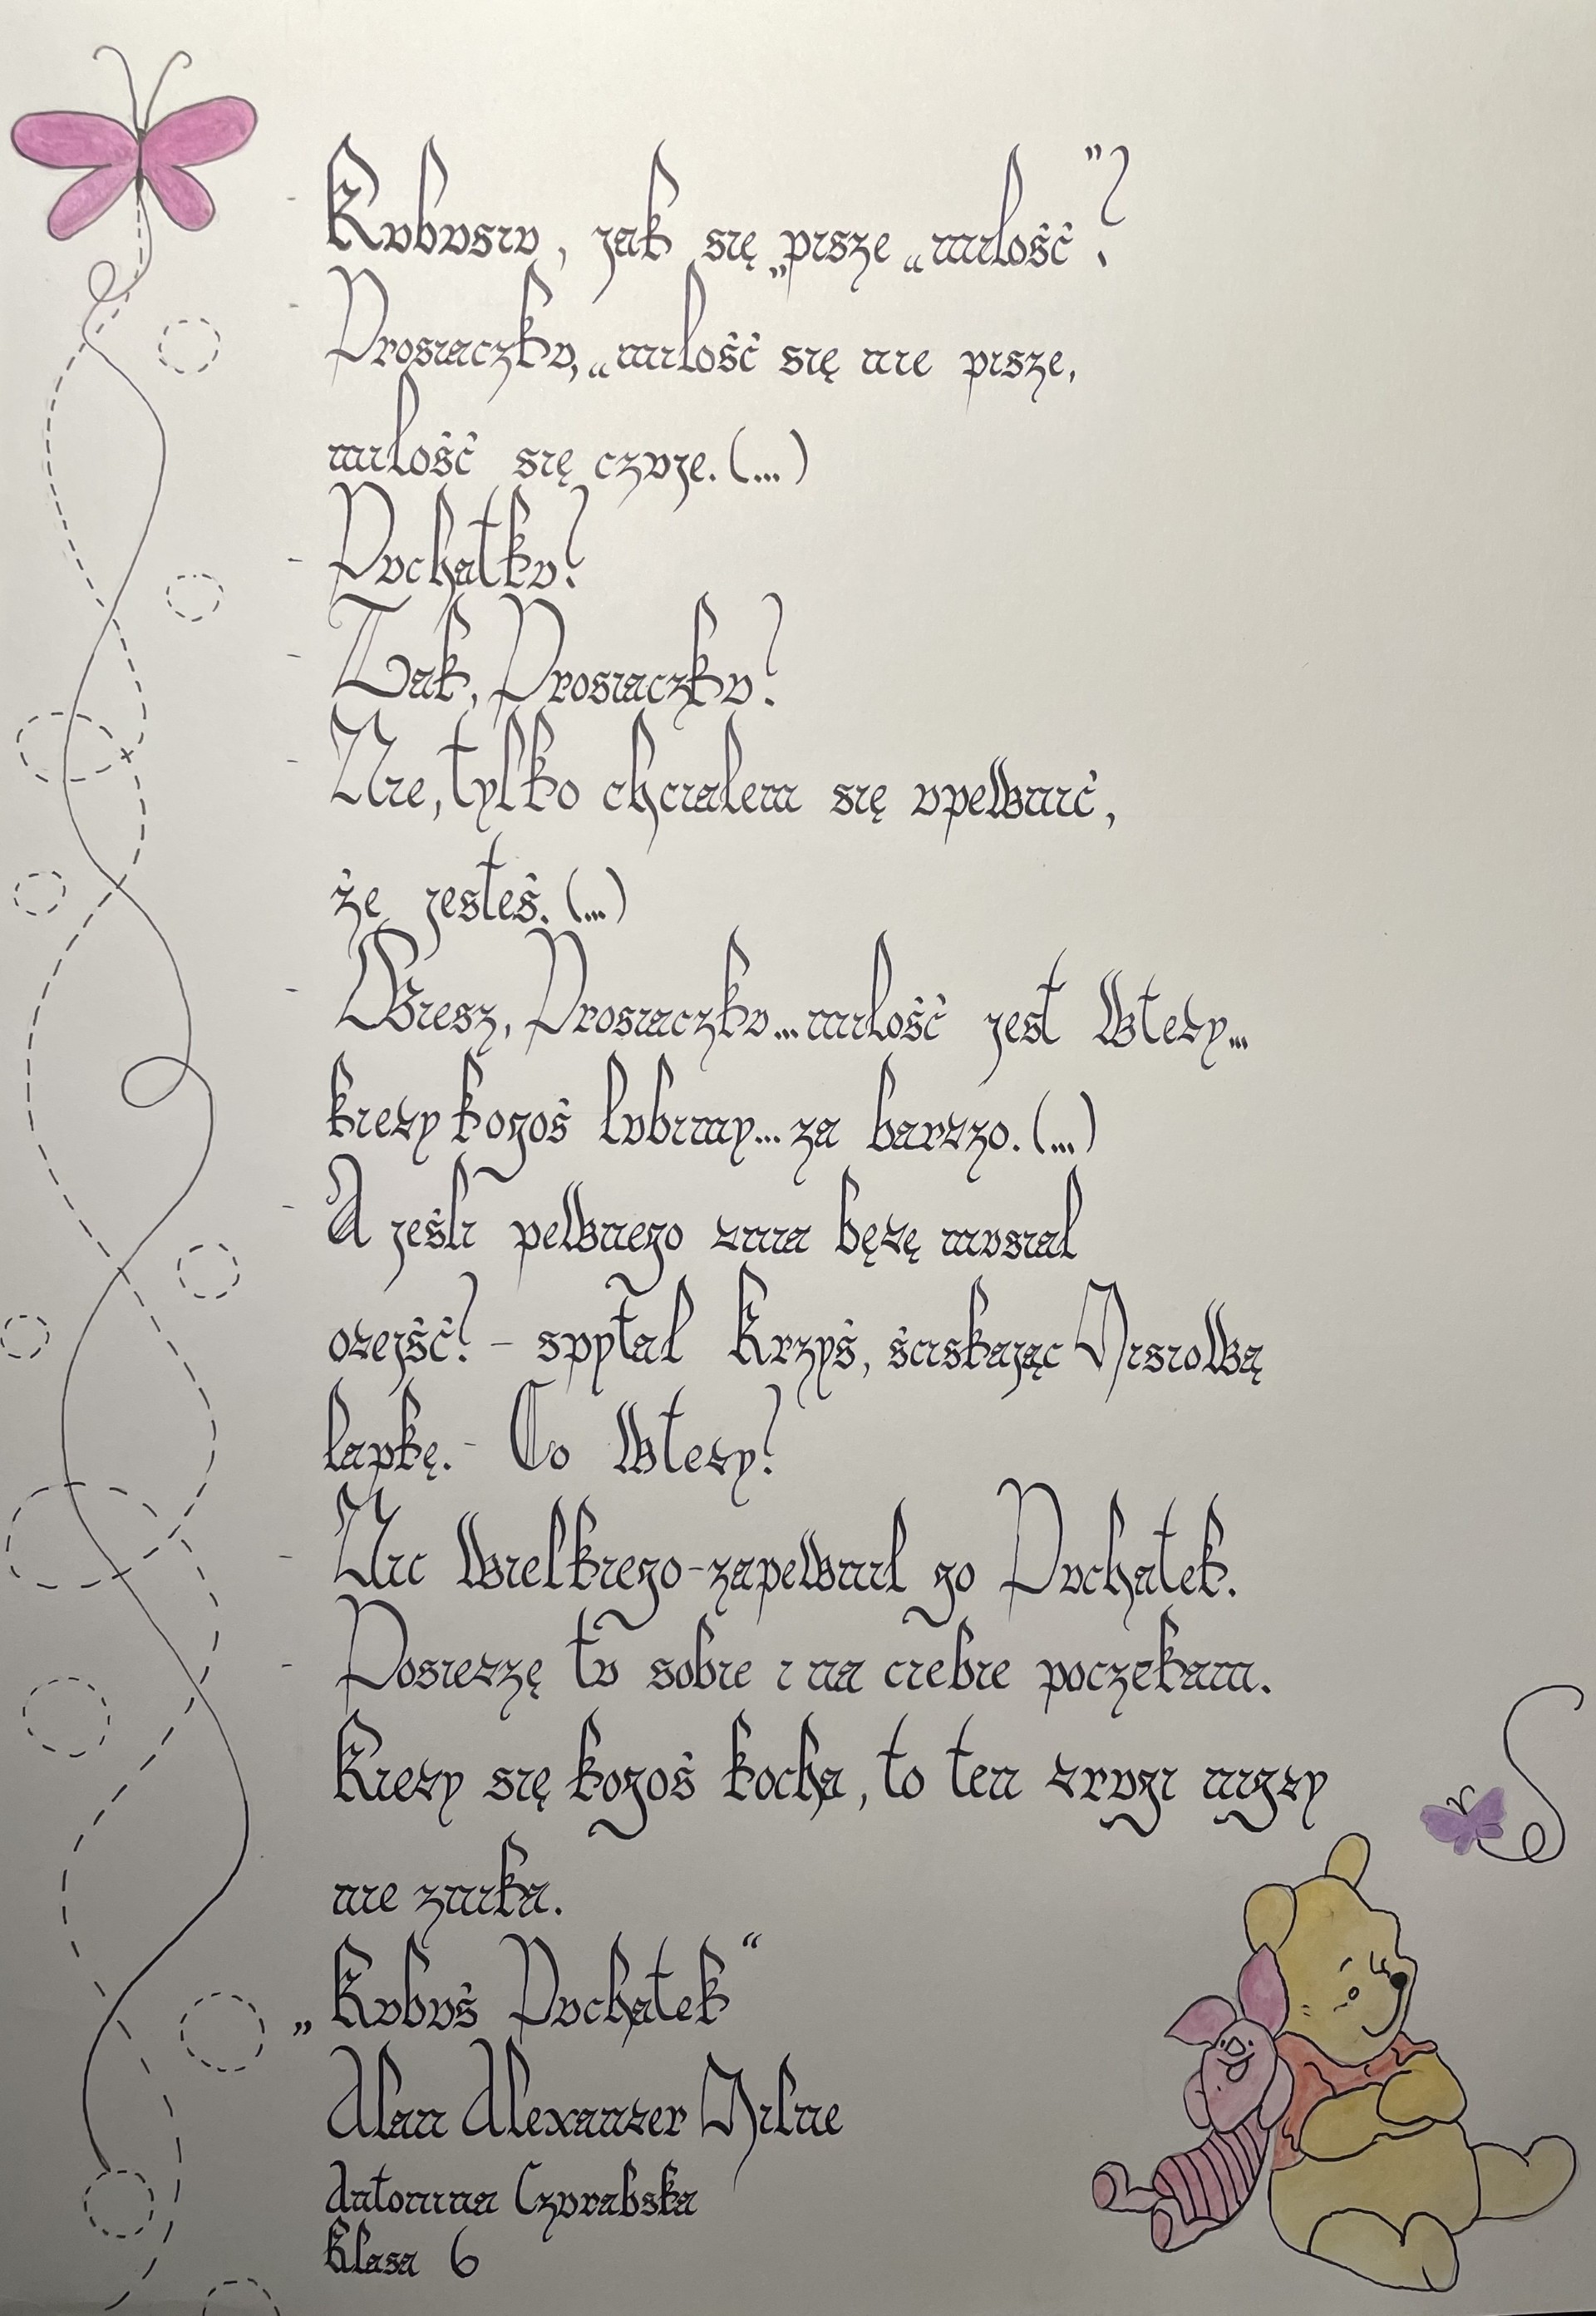 - Kubusiu, jak się „pisze „miłość"?
- Prosiaczku, „miłość się nie pisze,
miłość się czuje. (...)
- Puchatku?
- Tak, Prosiaczku?
- Nie, tylko chciałem się upewnić,
że jesteś. (...)
- Wiesz, Prosiaczku... miłość jest wtedy...
kiedy kogoś lubimy... za bardzo. (...)
- A jeśli pewnego dnia będę musiał
odejść? - spytał Krzyś, ściskając Misiową
łapkę. - Co wtedy?
- Nic wielkiego - zapewnił go Puchatek.
- Posiedzę tu sobie i na ciebie poczekam.
Kiedy się kogoś kocha, to ten drugi nigdy
nie znika.
„Kubuś Puchatek“
Alan Alexander Milne
Antonina Czurabska
Klasa 6